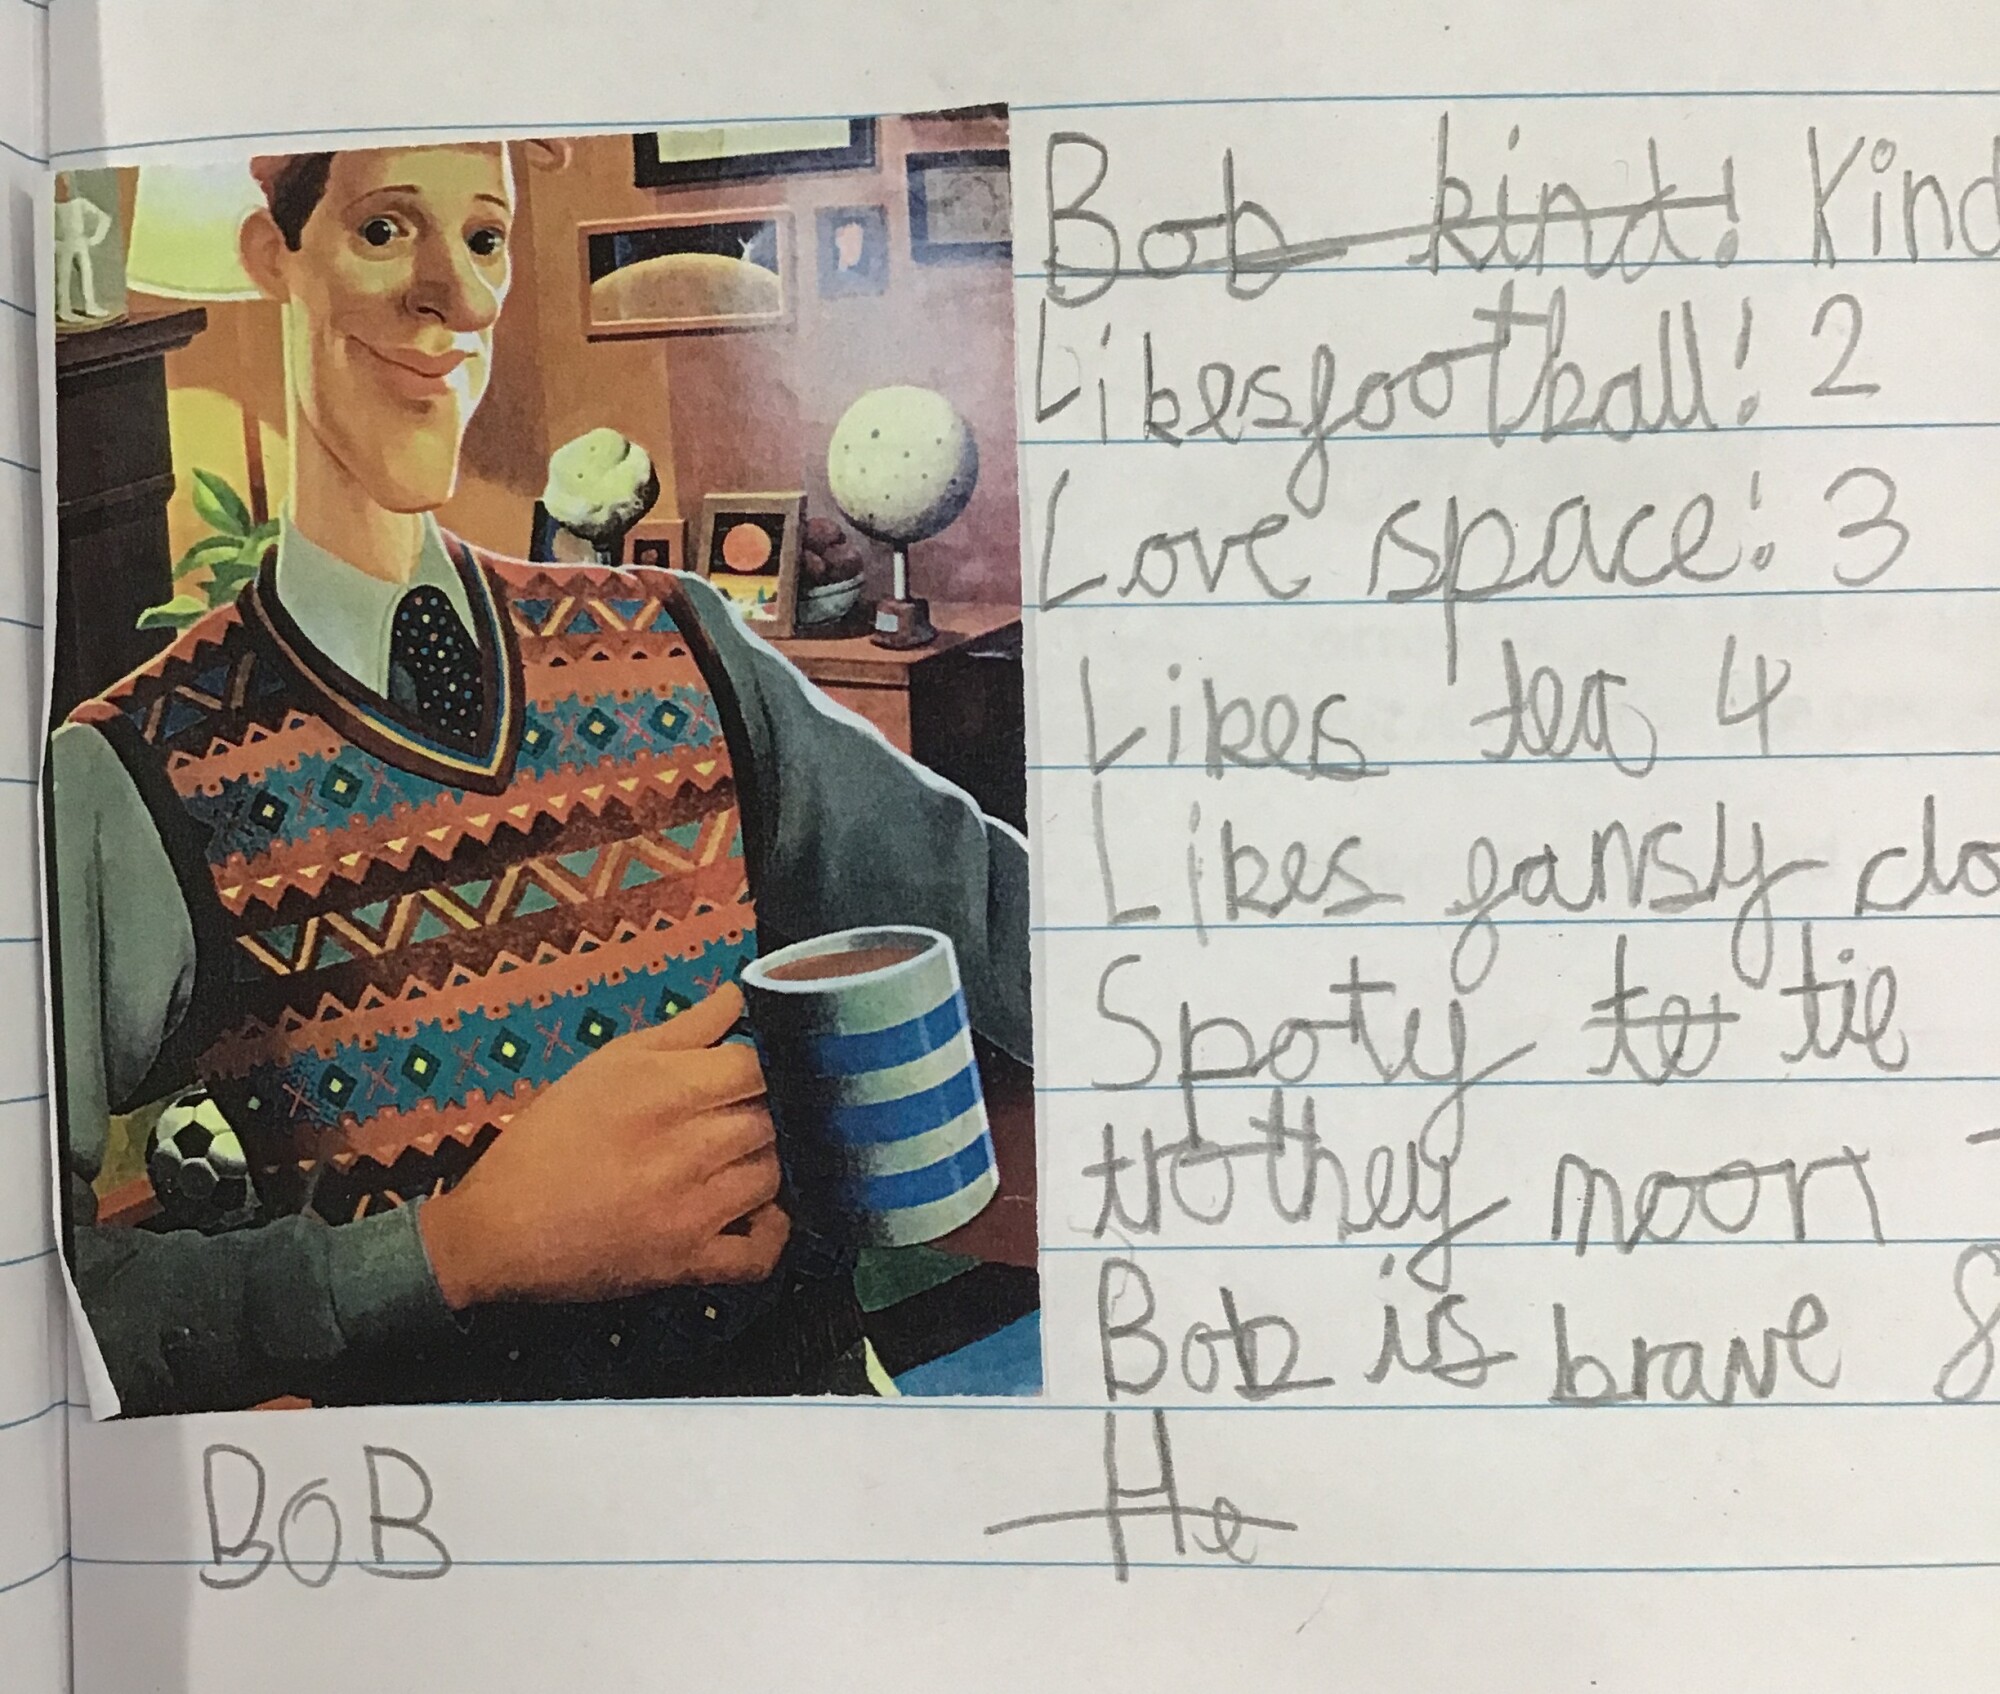 Bob kind! Kind
Likes football! 2
Love space! 3
Likes tea 4
Likes gansy clo
Spoty te tie
trothey moon
Bob is brave 8
He
BOB